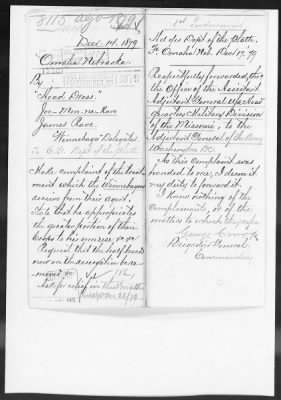 8113 ago 1879
Dec. 14. 1879
Omaha Nebraska.
By
"Head Dress."
James Rave.
Winnebago Delegates
To C.O. Dept of the Platte
Make complaint of the treat
ment which the Winnebagoes
receive from their agent.
State that he appropriates
the greater portion of their
crops to his own use &c &c
Request that the half breeds
now on the reservation be re
moved &c
Ask for relief in these matters
1st Endorsement
Hd. Qrs Dept of the Platte
Ft. Omaha Neb. Dec 17, 79
Respectfully forwarded, thro'
the Office of the Assistant
Adjutant General U.S.A. Head
quarters Military Division
of the Missouri, to the
Adjutant General of the Army
Washington D.C.
As this complaint was
handed to me, I deem it
my duty to forward it.
I know nothing of the
Complainants, or of the
matters to which they refer
George Crook
Brigadier General
Commanding